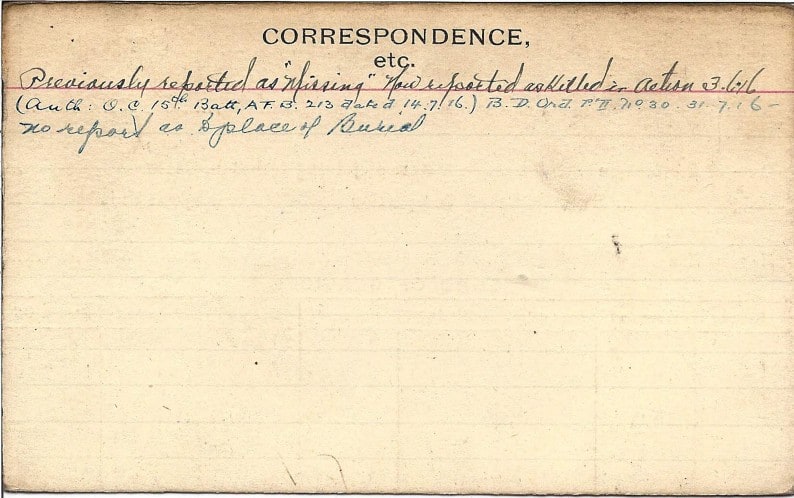 CORRESPONDENCE,
etc.
Previously reported as "Missing" Now reported as Killed in Action 3.6.16
(Auth: O.C. 15th Batt, A.F.B. 213 dated 14.7.16.) B.D. Ord. Pt II. No 30. 31.7.16 -
no report as to place of Burial